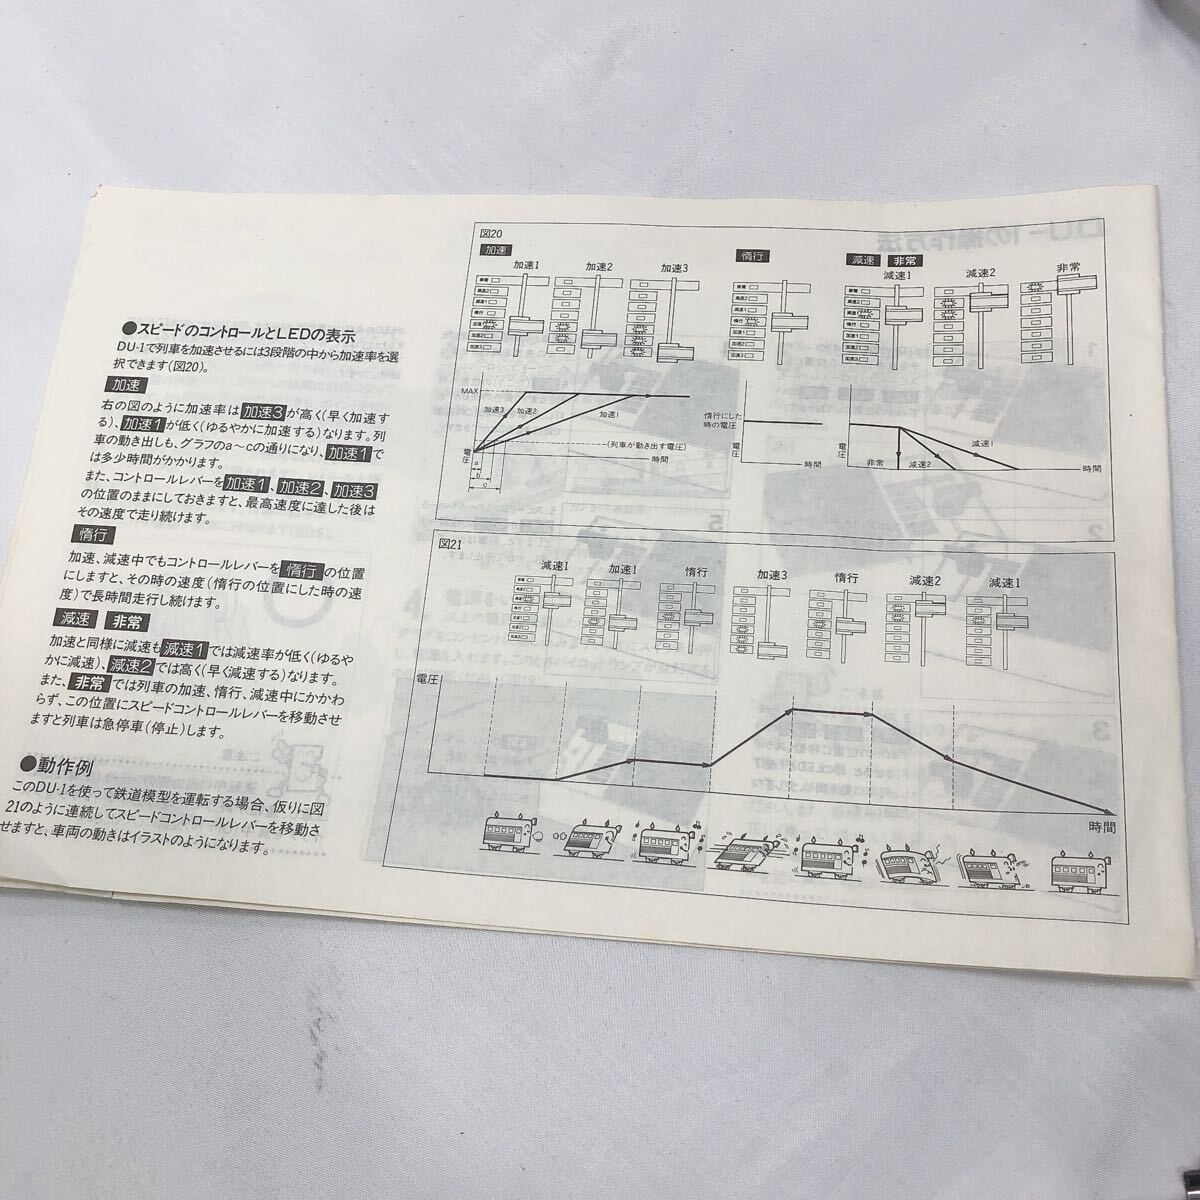 ●スピードのコントロールとLEDの表示
DU-1で列車を加速させるには3段階の中から加速率を選
択できます(図20)。
加速
右の図のように加速率は加速3が高く(早く加速す
る)、加速1が低く(ゆるやかに加速する)なります。列
車の動き出しも、グラフのa～cの通りになり、加速1で
は多少時間がかかります。
また、コントロールレバーを加速1、加速2、加速3
の位置のままにしておきますと、最高速度に達した後は
その速度で走り続けます。
惰行
加速、減速中でもコントロールレバーを惰行の位置
にしますと、その時の速度(惰行の位置にした時の速
度)で長時間走行し続けます。
減速 非常
加速と同様に減速も減速1では減速率が低く(ゆるや
かに減速)、減速2では高く(早く減速する)なります。
また、非常では列車の加速、惰行、減速中にかかわ
らず、この位置にスピードコントロールレバーを移動させ
ますと列車は急停車(停止)します。
●動作例
このDU-1を使って鉄道模型を運転する場合、仮りに図
21のように連続してスピードコントロールレバーを移動さ
せますと、車両の動きはイラストのようになります。
図20
加速
加速1
加速2
加速3
惰行
減速 非常
減速1
減速2
非常
非常
減速2
減速1
惰行
加速1
加速2
加速3
MAX
加速3
加速2
加速1
(列車が動き出す電圧)
電圧
時間
a
b
c
惰行にした
時の電圧
電圧
時間
電圧
非常
減速2
減速1
時間
図21
減速1
加速1
惰行
加速3
惰行
減速2
減速1
電圧
時間